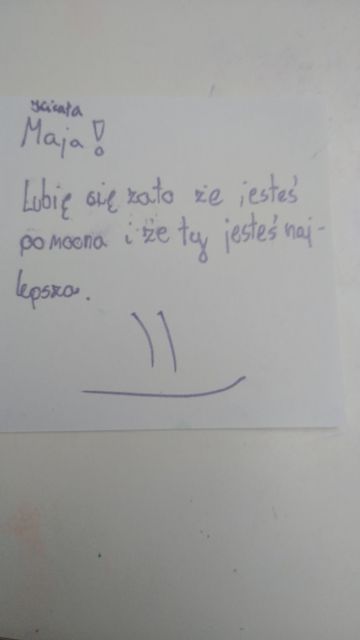 Maja!
Lubię się zato że jesteś
pomocna i że ty jesteś naj-
lepsza.